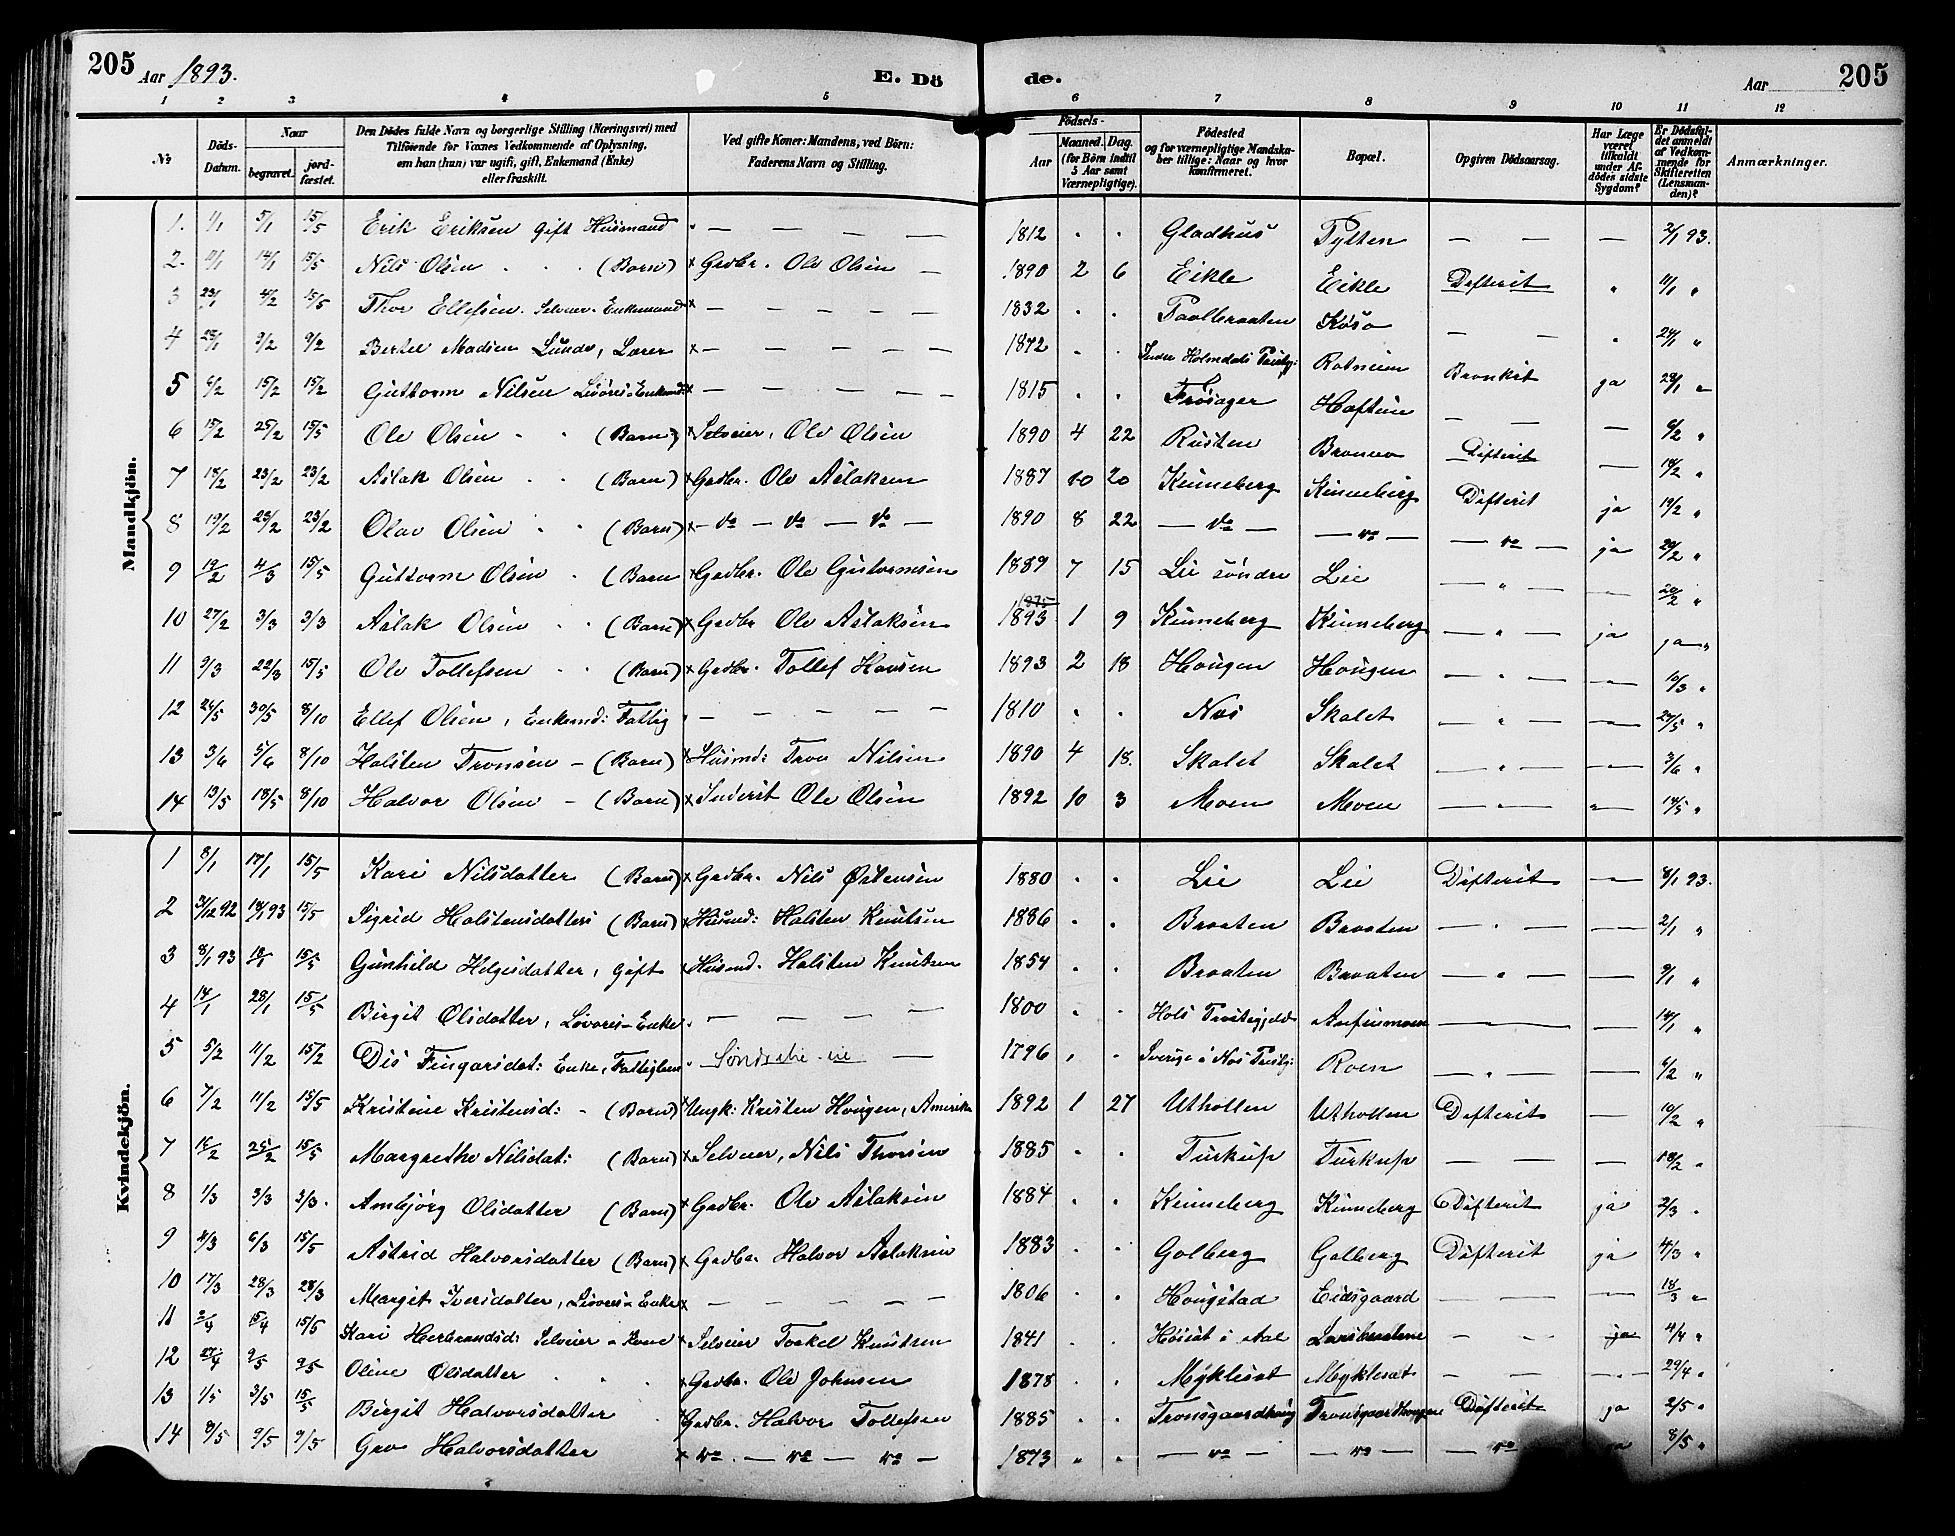 205 Aar 1893. E. Dö de. Aar 205
1 2 3 4 5 6 7 8 9 10 11 12
№ Döds-Datum. Naar begravet. jordfæstet. Den Dødes fulde Navn og borgerlige Stilling (Næringsvei) med Tilföiende for Voxnes Vedkommende af Oplysning, om han (hun) var ugift, gift, Enkemand (Enke) eller fraskilt. Ved gifte Koner: Mandens, ved Börn: Faderens Navn og Stilling. Födsels- Aar Maaned. Dag. (for Börn indtil 5 Aar samt Værnepligtige). Födested og for værnepligtige Mandskaber tillige: Naar og hvor konfirmeret. Bopæl. Opgiven Dödsaarsag. Har Læge været tilkaldt under Afdödes sidste Sygdom? Er Dödsfaldet anmeldt af Vedkommende for Skifteretten (Lensmanden)? Anmærkninger.
Mandkjön.
1. 1/1 5/1 15/5 Erik Eriksen Gift Husmand " — — — — 1812 " " Gladhus Tytten — — — 2/1 93.
2. 11/1 14/1 15/5 Nils Olsen " " (Barn) × Grdbr. Ole Olsen — 1890 2 6 Eikle Eikle Defterit " 11/1 "
3 23/1 4/2 15/5 Thor Ellefsen. Selveier. Enkemand × — — — — 1832 " " Paalbraaten Køso — — " 24/1 "
4 25/1 9/2 9/2 Bertel Madsen Lunde, Lærer × — — — — 1872 " " Indre Holmedals Præstg: Rotneim Bronkit ja 28/1 "
5 6/2 15/2 15/2 Guttorm Nilsen Livöres-Enkemd: × — — — — 1815 " " Frøsager Haftun — — — 6/2 "
6 15/2 25/2 15/5 Ole Olsen " " (Barn) × Selveier, Ole Olsen 1890 4 22 Rusten Difterit — 18/2 "
7 18/2 23/2 23/2 Aslak Olsen " (Barn) × Grdbr. Ole Aslaksen 1887 10 20 Kinneberg Kinneberg Difterit ja 19/2 "
8 19/2 23/2 23/2 Olav Olsen " " (Barn) × — do — do — do — 1890 8 22 — do — — do — — do — ja 20/2 "
9 19/2 4/3 15/5 Guttorm Olsen " (Barn × Grdbr. Ole Guttormsen 1889 7 15 Lie söndre Lie — " — — " — 20/2 "
10 27/2 3/3 3/3 Aslak Olsen " " (Barn) × Grdbr Ole Aslaksen 1893 1 9 Kinneberg Kinneberg — " — ja ja "
11 9/3 22/3 15/5 Ole Tollefsen " " (Barn) × Grdbr. Tollef Hansen 1893 2 18 Hougen Hougen — " — — " — 10/3 "
12 24/5 30/5 8/10 Ellef Olsen, Enkemd: Fattig " — — — — 1810 " " Nes Skalet — " — — " — 29/5 "
13 3/6 5/6 8/10 Halsten Tronsen — (Barn) × Husmd: Tron Nilsen 1890 4 18. Skalet Skalet — " — — " — 3/6 "
14 13/5 18/5 8/10 Halvor Olsen — (Barn) × Inderst Ole Olsen 1892 10 3 Moen Moen — " — " — 14/5 "
Kvindekjön.
1 8/1 17/1 15/5 Kari Nilsdatter (Barn) × Grdbr. Nils Østensen 1880 " " Lie Lie Difterit — 8/1 93.
2 31/12 92 18/1 93 15/5 Sigrid Halstensdatter (Barn) × Husmd: Halsten Knutsen 1886 " " Braaten Braaten — " — — 2/1 "
3 8/1 93 18/1 15/5 Gunhild Helgesdatter, Gift × Husmd. Halsten Knutsen 1854 " " Braaten Braaten — " — — 9/1 "
4 14/1 28/1 15/5 Birgit Olsdatter, Livöres-Enke " — — — 1800 " " Hols Præstegjeld Anfinmoen — — — 14/1 "
5 5/2 11/2 15/2 Dis Fingarsdat: Enke, Fattiglem " — 1796 " " Sverige i Nes Præstg: Roen — " — — 6/2 "
6 7/2 11/2 15/5 Kristine Kristensd: — (Barn) × Ungk: Kristen Hougen, Amerika 1892 1 27 Uthollen Uthollen Difterit — 10/2 "
7 15/2 25/2 15/5 Margrethe Nilsdat: (Barn) × Selveier, Nils Thorsen 1885 " " Turkup Turkup — — — 18/2 "
8 1/3 3/3 3/3. Ambjörg Olsdatter (Barn) × Grdbr. Ole Aslaksen 1884 " " Kinneberg Kinneberg Difterit ja 2/3 "
9 4/3 6/3 15/5 Astrid Halvorsdatter (Barn) × Grdbr. Halvor Aslaksen 1883 " " Golberg Golberg Difterit ja 4/3 "
10 17/3 28/3 28/3 Margit Iversdatter, Livöres-Enke × — — — — 1806 " " Hougstad Eidsgaard — — — 18/3 "
11 2/4 15/4 15/5 Kari Herbrandsd: Selveier-Kone × Selveier Torkel Knutsen 1841 " " Høiset i Aal — — ja 4/4 "
12 27/4 9/5 9/5 Oline Olsdatter " " × Grdbr. Ole Johnsen 1878 " " Myklesat Myklesat — — — " — 29/4 "
13 1/5 3/5 15/5 Birgit Halvorsdatter " Grdbr. Halvor Tollefsen 1885 " " Tronsgaardhaug Tronsgaardhougen Difterit ja 2/5 "
14 8/5 9/5 9/5 Gro Halvorsdatter × do. — do — do — 1873 " " — do — — do — — do ja 8/5 "